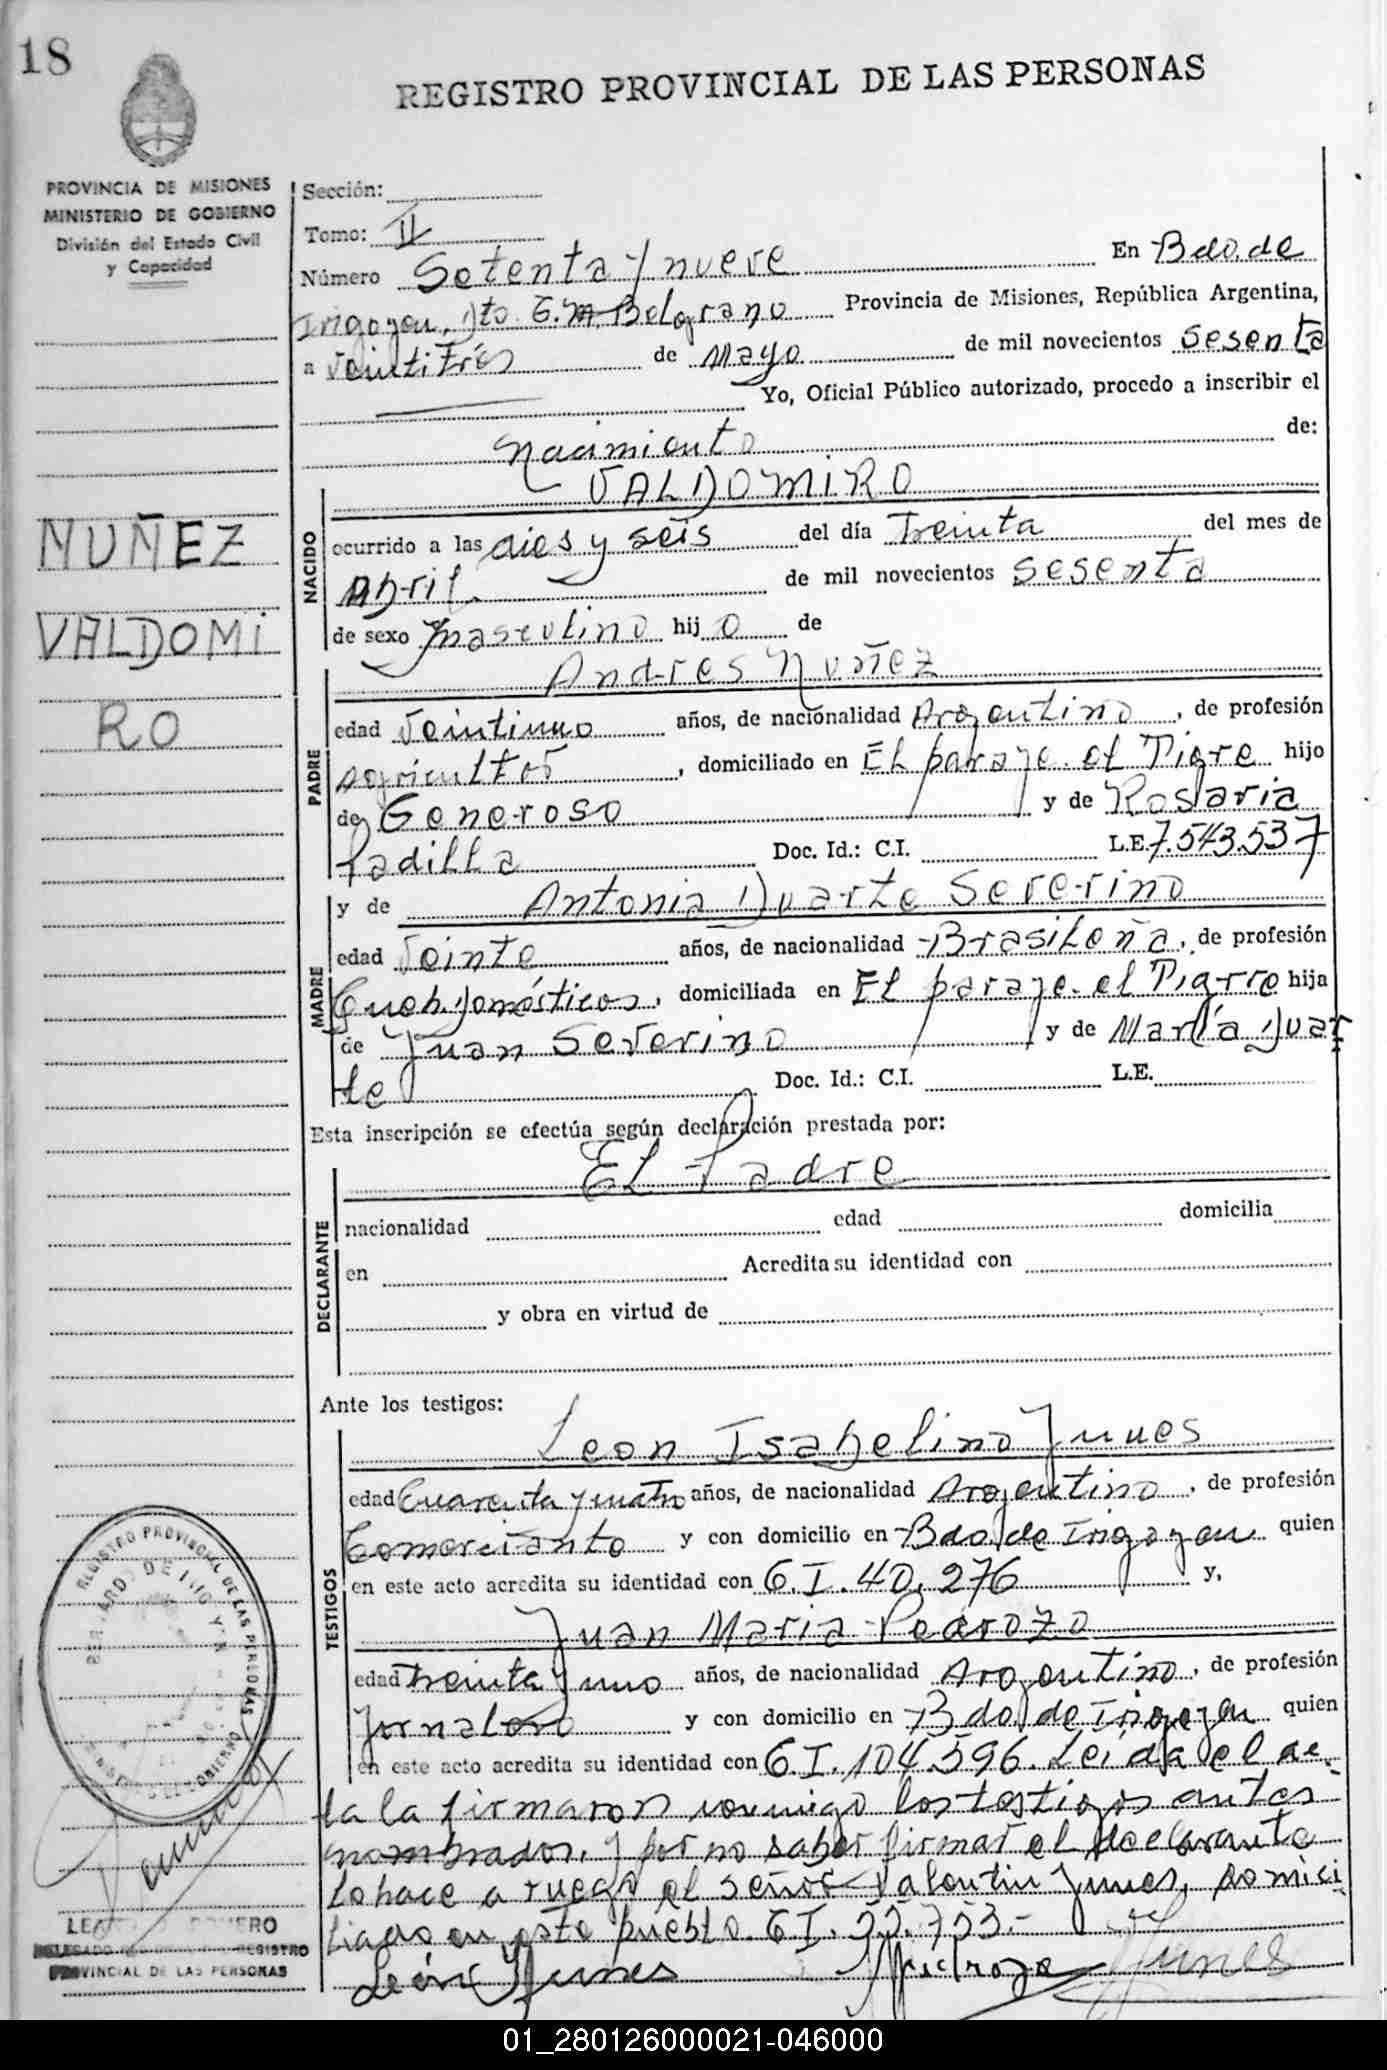 18
REGISTRO PROVINCIAL DE LAS PERSONAS
PROVINCIA DE MISIONES
MINISTERIO DE GOBIERNO
División del Estado Civil
y Capacidad
NUÑEZ
VALDOMI
RO
Sección:
Tomo: II
Número Setenta y nueve En Bdo. de
Irigoyen, Dto. G.M. Belgrano Provincia de Misiones, República Argentina,
a veintitrés de Mayo de mil novecientos sesenta
Yo, Oficial Público autorizado, procedo a inscribir el
Nacimiento de:
NACIDO
VALDOMIRO
ocurrido a las dies y seis del día Treinta del mes de
Abril de mil novecientos sesenta
de sexo masculino hijo de
PADRE
Andres Nuñez
edad veintiuno años, de nacionalidad Argentino, de profesión
agricultor, domiciliado en El paraje el Tigre hijo
de Generoso y de Rosaria
Padilla Doc. Id.: C.I. L.E. 7.543.537
MADRE
y de Antonia Duarte Severino
edad veinte años, de nacionalidad Brasileña, de profesión
Queh. domésticos, domiciliada en El paraje el Tigre hija
de Juan Severino y de María Duar
te Doc. Id.: C.I. L.E.
Esta inscripción se efectúa según declaración prestada por:
DECLARANTE
El Padre
nacionalidad edad domicilia
en Acredita su identidad con
y obra en virtud de
Ante los testigos:
TESTIGOS
Leon Isabelino Junes
edad Cuarenta y cuatro años, de nacionalidad Argentino, de profesión
Comerciante y con domicilio en Bdo. de Irigoyen quien
en este acto acredita su identidad con C.I. 40.276 y,
Juan Maria Pedrozo
edad treinta y uno años, de nacionalidad Argentino, de profesión
Jornalero y con domicilio en Bdo. de Irigoyen quien
en este acto acredita su identidad con C.I. 104.596. Leída el ac
ta la firmaron conmigo los testigos antes
nombrados, y por no saber firmar el declarante
lo hace a ruego el señor Valentin Junes, domici
liado en este pueblo C.I. 55.753.-
León Junes Pedrozo Junes
REGISTRO PROVINCIAL DE LAS PERSONAS
BERNARDO DE IRIGOYEN
ROMERO
REGISTRO
PROVINCIAL DE LAS PERSONAS
01_280126000021-046000